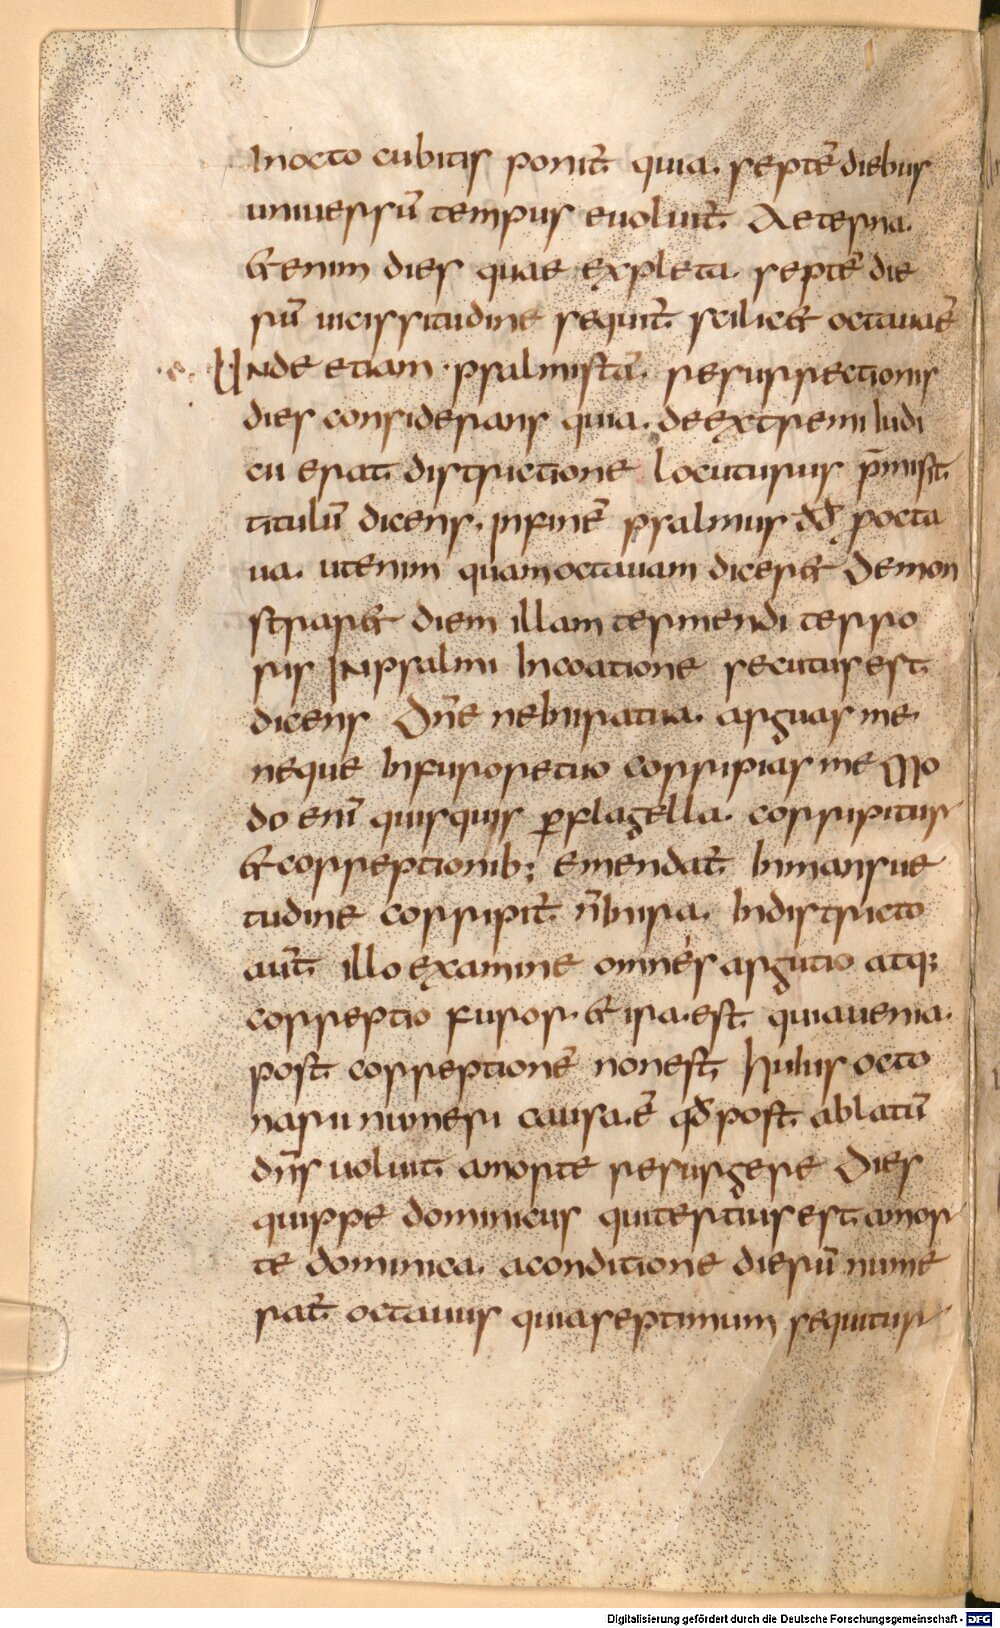 In octo cubitis ponit̄ quia. septē diebus
uniuersū tempus euoluit̄. Aeterna.
& enim dies quae expleta. septē die
rū uicissitudine sequit̄. scilic& octauaē
.e. Unde etiam. psalmista. resurrectionis
dies considerans quia. deextremi iudi
cii erat districtione locuturus p̄misit
titulū dicens. infinē psalmus dd̄ ꝓocta
ua. utenim quam octauam dicer& demon
strar& diem illam tremendi terro
ris In psalmi incoatione secutus est
dicens Dn̄e neInira tua. arguas me.
neque Infurore tuo corripias me Mo
do enī quisquis ꝑflagella. corripitur
& correptionib; emendat̄. Inmansue
tudine corripit̄. n̄ Inira. Indistricto
aut̄ illo examine omnes argutio atq;
correptio furor. & ira. est. quia uenia.
post correptionē non est. huius octo
narii numeri causa. ē qd̄ post ablatū
dn̄s uoluit amorte resurgere Dies
quippe dominicus qui tertius est amor
te dominica. aconditione dierū nume
rat̄ octauus quia septimum sequitur
Digitalisierung gefördert durch die Deutsche Forschungsgemeinschaft - DFG